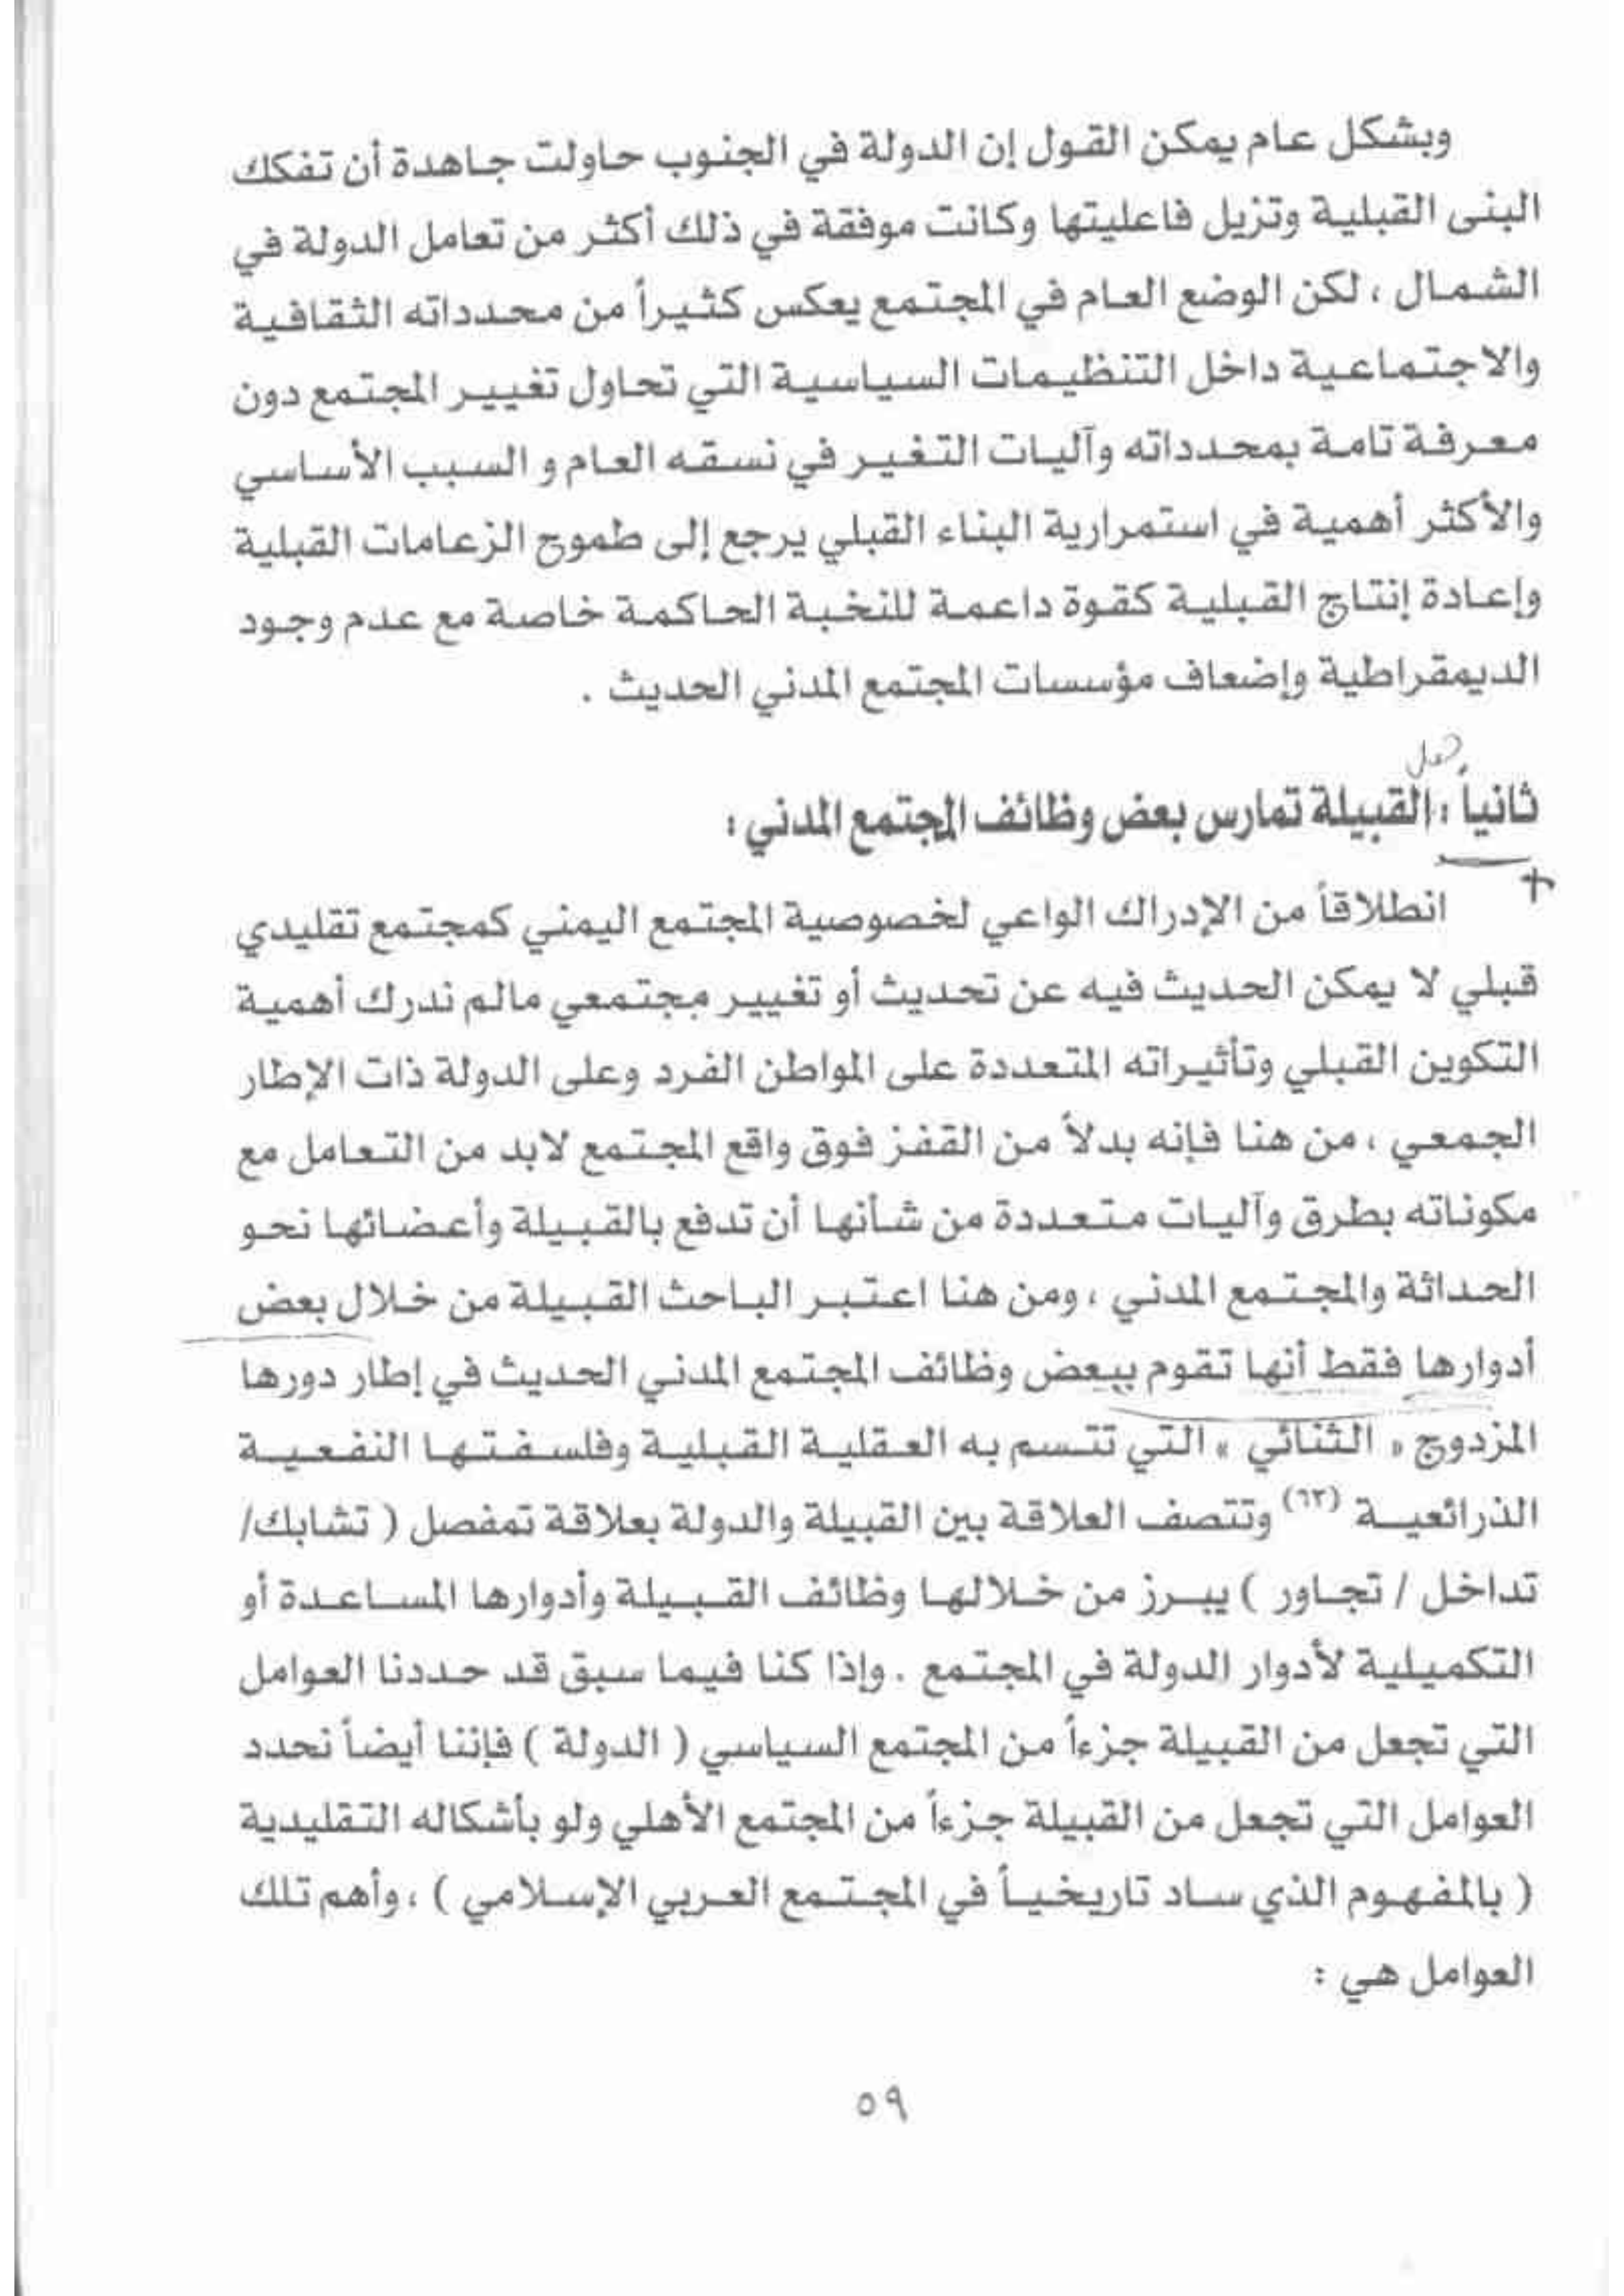 وبشكل عام يمكن القول إن الدولة في الجنوب حاولت جاهدة أن تفكك
البنى القبلية وتزيل فاعليتها وكانت موفقة في ذلك أكثر من تعامل الدولة في
الشمال ، لكن الوضع العام في المجتمع يعكس كثيراً من محدداته الثقافية
والاجتماعية داخل التنظيمات السياسية التي تحاول تغيير المجتمع دون
معرفة تامة بمحدداته وآليات التغير في نسقه العام و السبب الأساسي
والأكثر أهمية في استمرارية البناء القبلي يرجع إلى طموح الزعامات القبلية
وإعادة إنتاج القبلية كقوة داعمة للنخبة الحاكمة خاصة مع عدم وجود
الديمقراطية وإضعاف مؤسسات المجتمع المدني الحديث .
ثانياً : القبيلة تمارس بعض وظائف المجتمع المدني :
انطلاقاً من الإدراك الواعي لخصوصية المجتمع اليمني كمجتمع تقليدي
قبلي لا يمكن الحديث فيه عن تحديث أو تغيير مجتمعي مالم ندرك أهمية
التكوين القبلي وتأثيراته المتعددة على المواطن الفرد وعلى الدولة ذات الإطار
الجمعي ، من هنا فإنه بدلاً من القفز فوق واقع المجتمع لابد من التعامل مع
مكوناته بطرق وآليات متعددة من شأنها أن تدفع بالقبيلة وأعضائها نحو
الحداثة والمجتمع المدني ، ومن هنا اعتبر الباحث القبيلة من خلال بعض
أدوارها فقط أنها تقوم ببعض وظائف المجتمع المدني الحديث في إطار دورها
المزدوج « الثنائي » التي تتسم به العقلية القبلية وفلسفتها النفعية
الذرائعية (٦٣) وتتصف العلاقة بين القبيلة والدولة بعلاقة تمفصل ( تشابك/
تداخل / تجاور ) يبرز من خلالها وظائف القبيلة وأدوارها المساعدة أو
التكميلية لأدوار الدولة في المجتمع . وإذا كنا فيما سبق قد حددنا العوامل
التي تجعل من القبيلة جزءاً من المجتمع السياسي ( الدولة ) فإننا أيضاً نحدد
العوامل التي تجعل من القبيلة جزءاً من المجتمع الأهلي ولو بأشكاله التقليدية
( بالمفهوم الذي ساد تاريخياً في المجتمع العربي الإسلامي ) ، وأهم تلك
العوامل هي :
٥٩